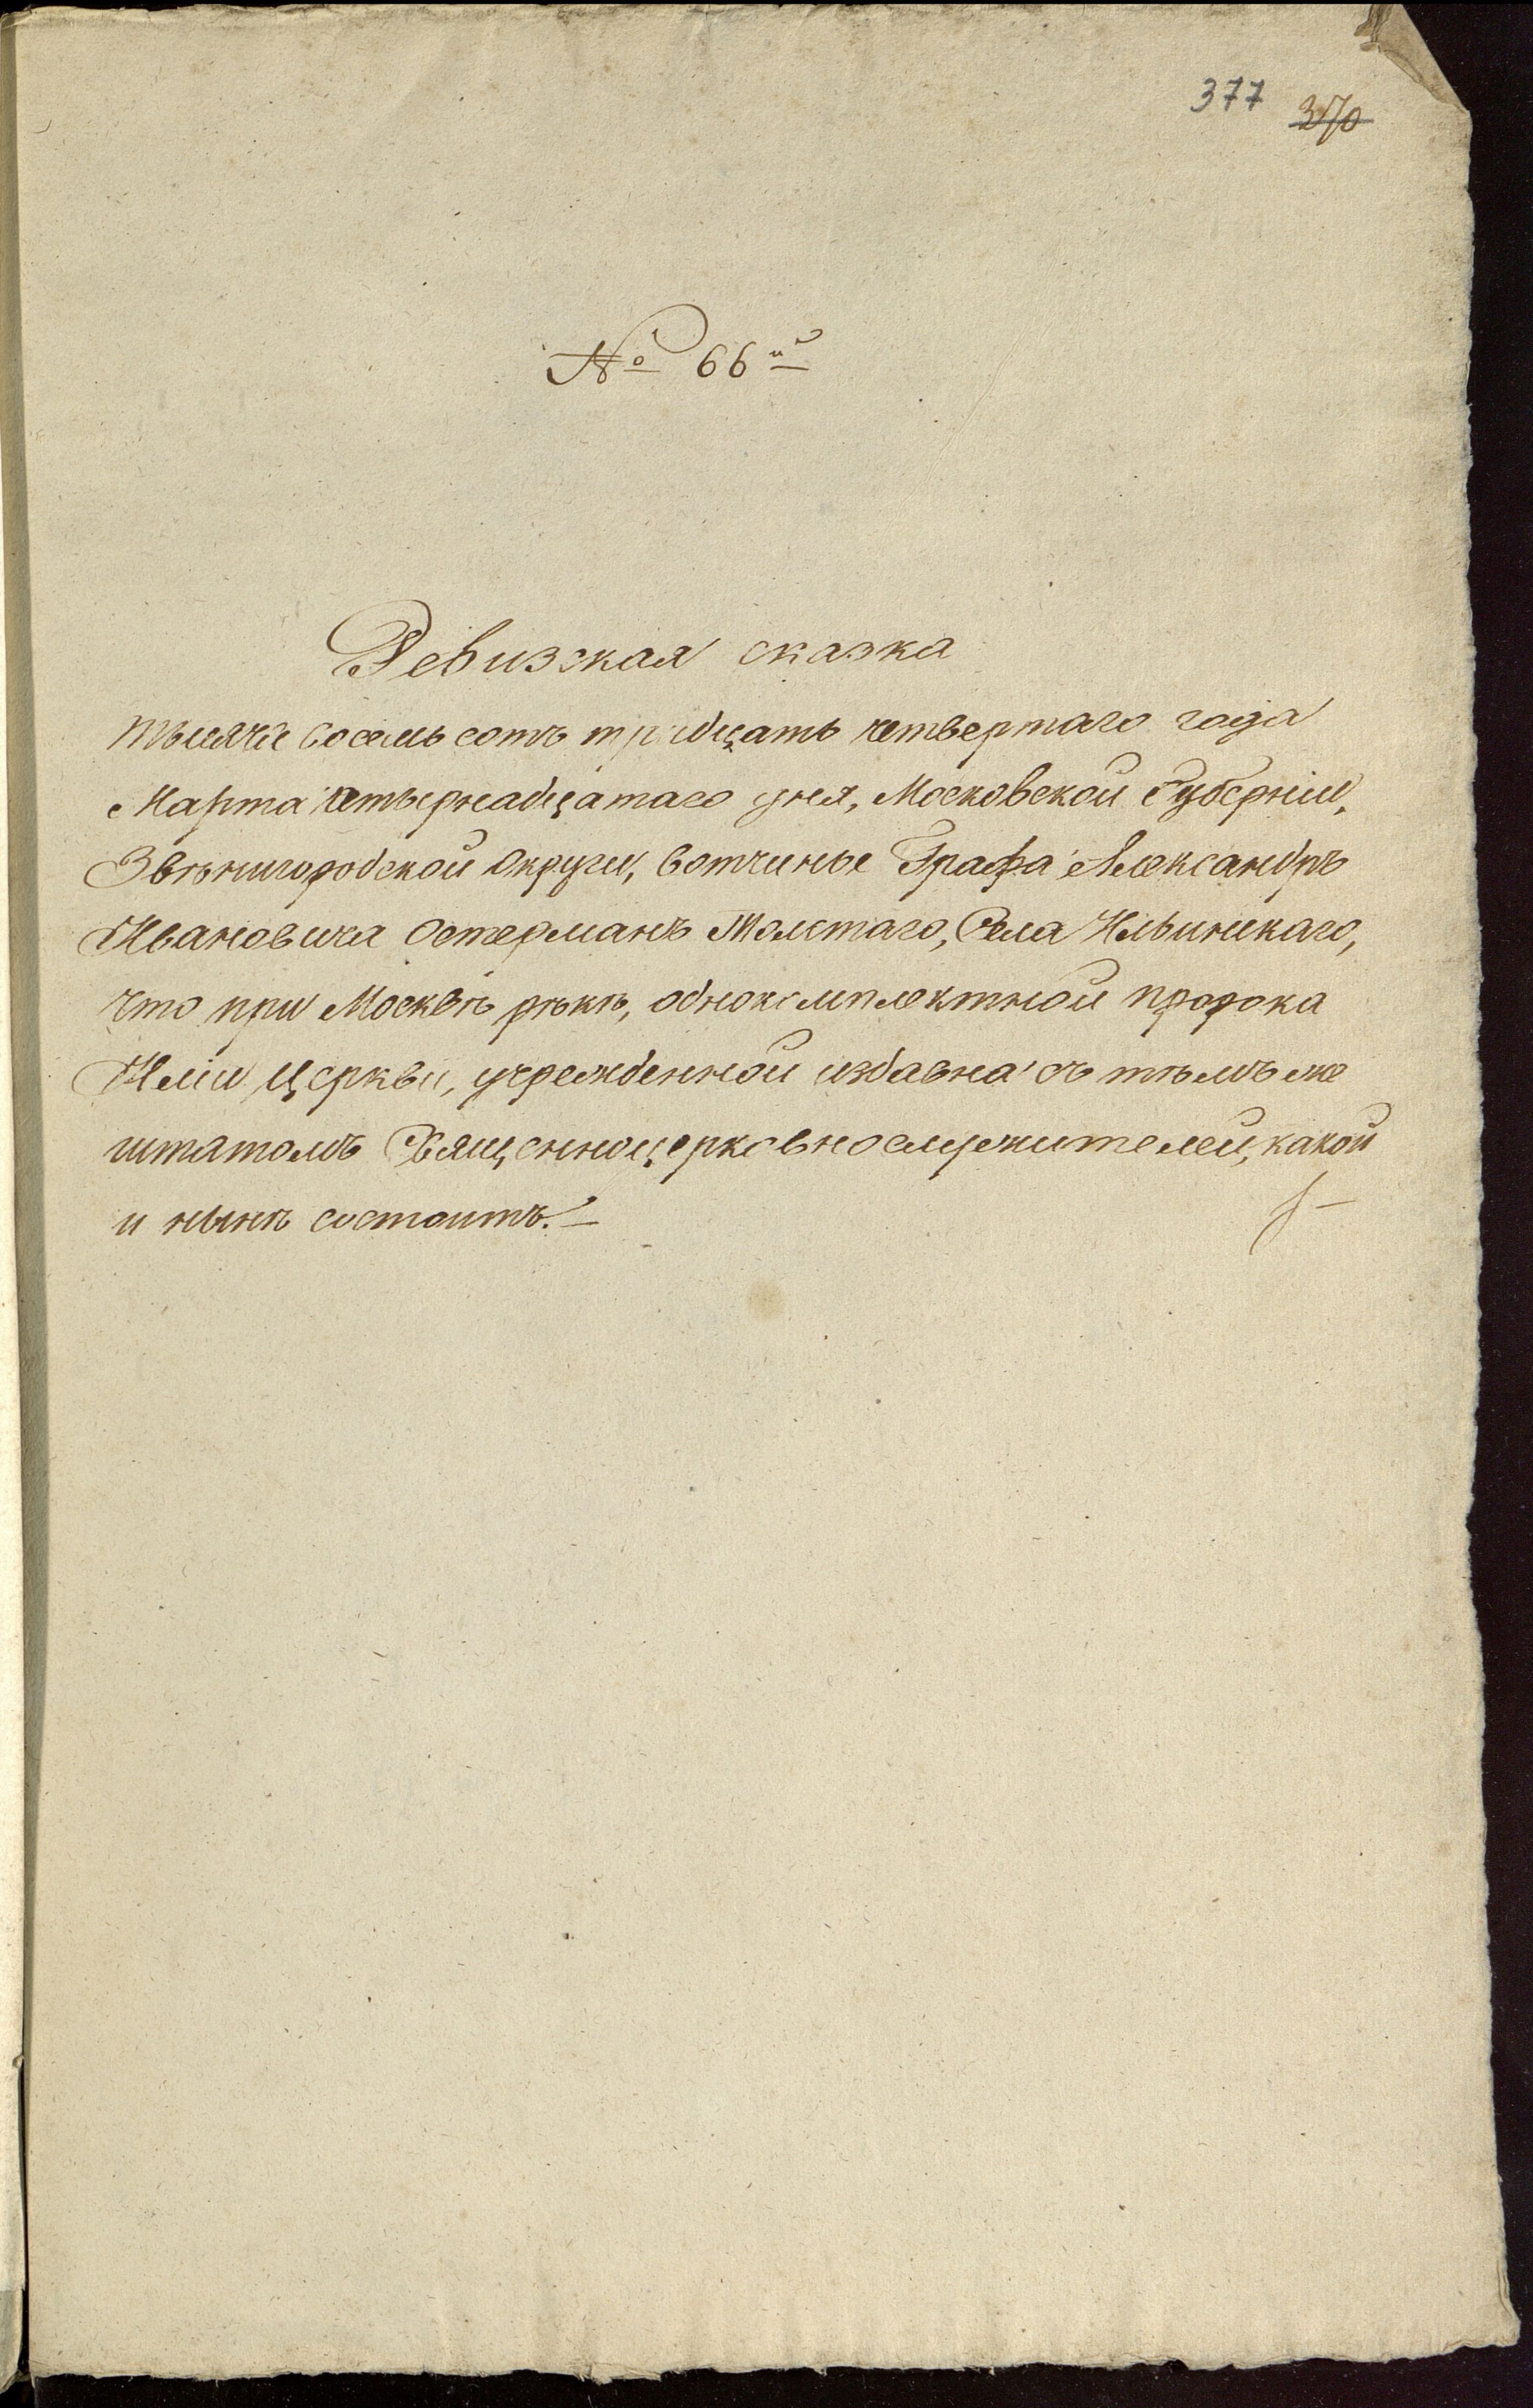 377 370
№ 66й
Ревизская сказка
тысяча восемь сотъ тридцать четвертаго года
Марта четырнадцатаго дня, Московской Губерніи,
Звѣнигородской Округи, вотчины Графа Александръ
Ивановича Остерманъ Толстаго, Села Ильинскаго,
что при Москвѣ рѣкѣ, однокомплектной пророка
Иліи Церкви, учрежденной издавна съ тѣмъ же
штатомъ Священноцерковнослужителей, какой
и нынѣ состоитъ.